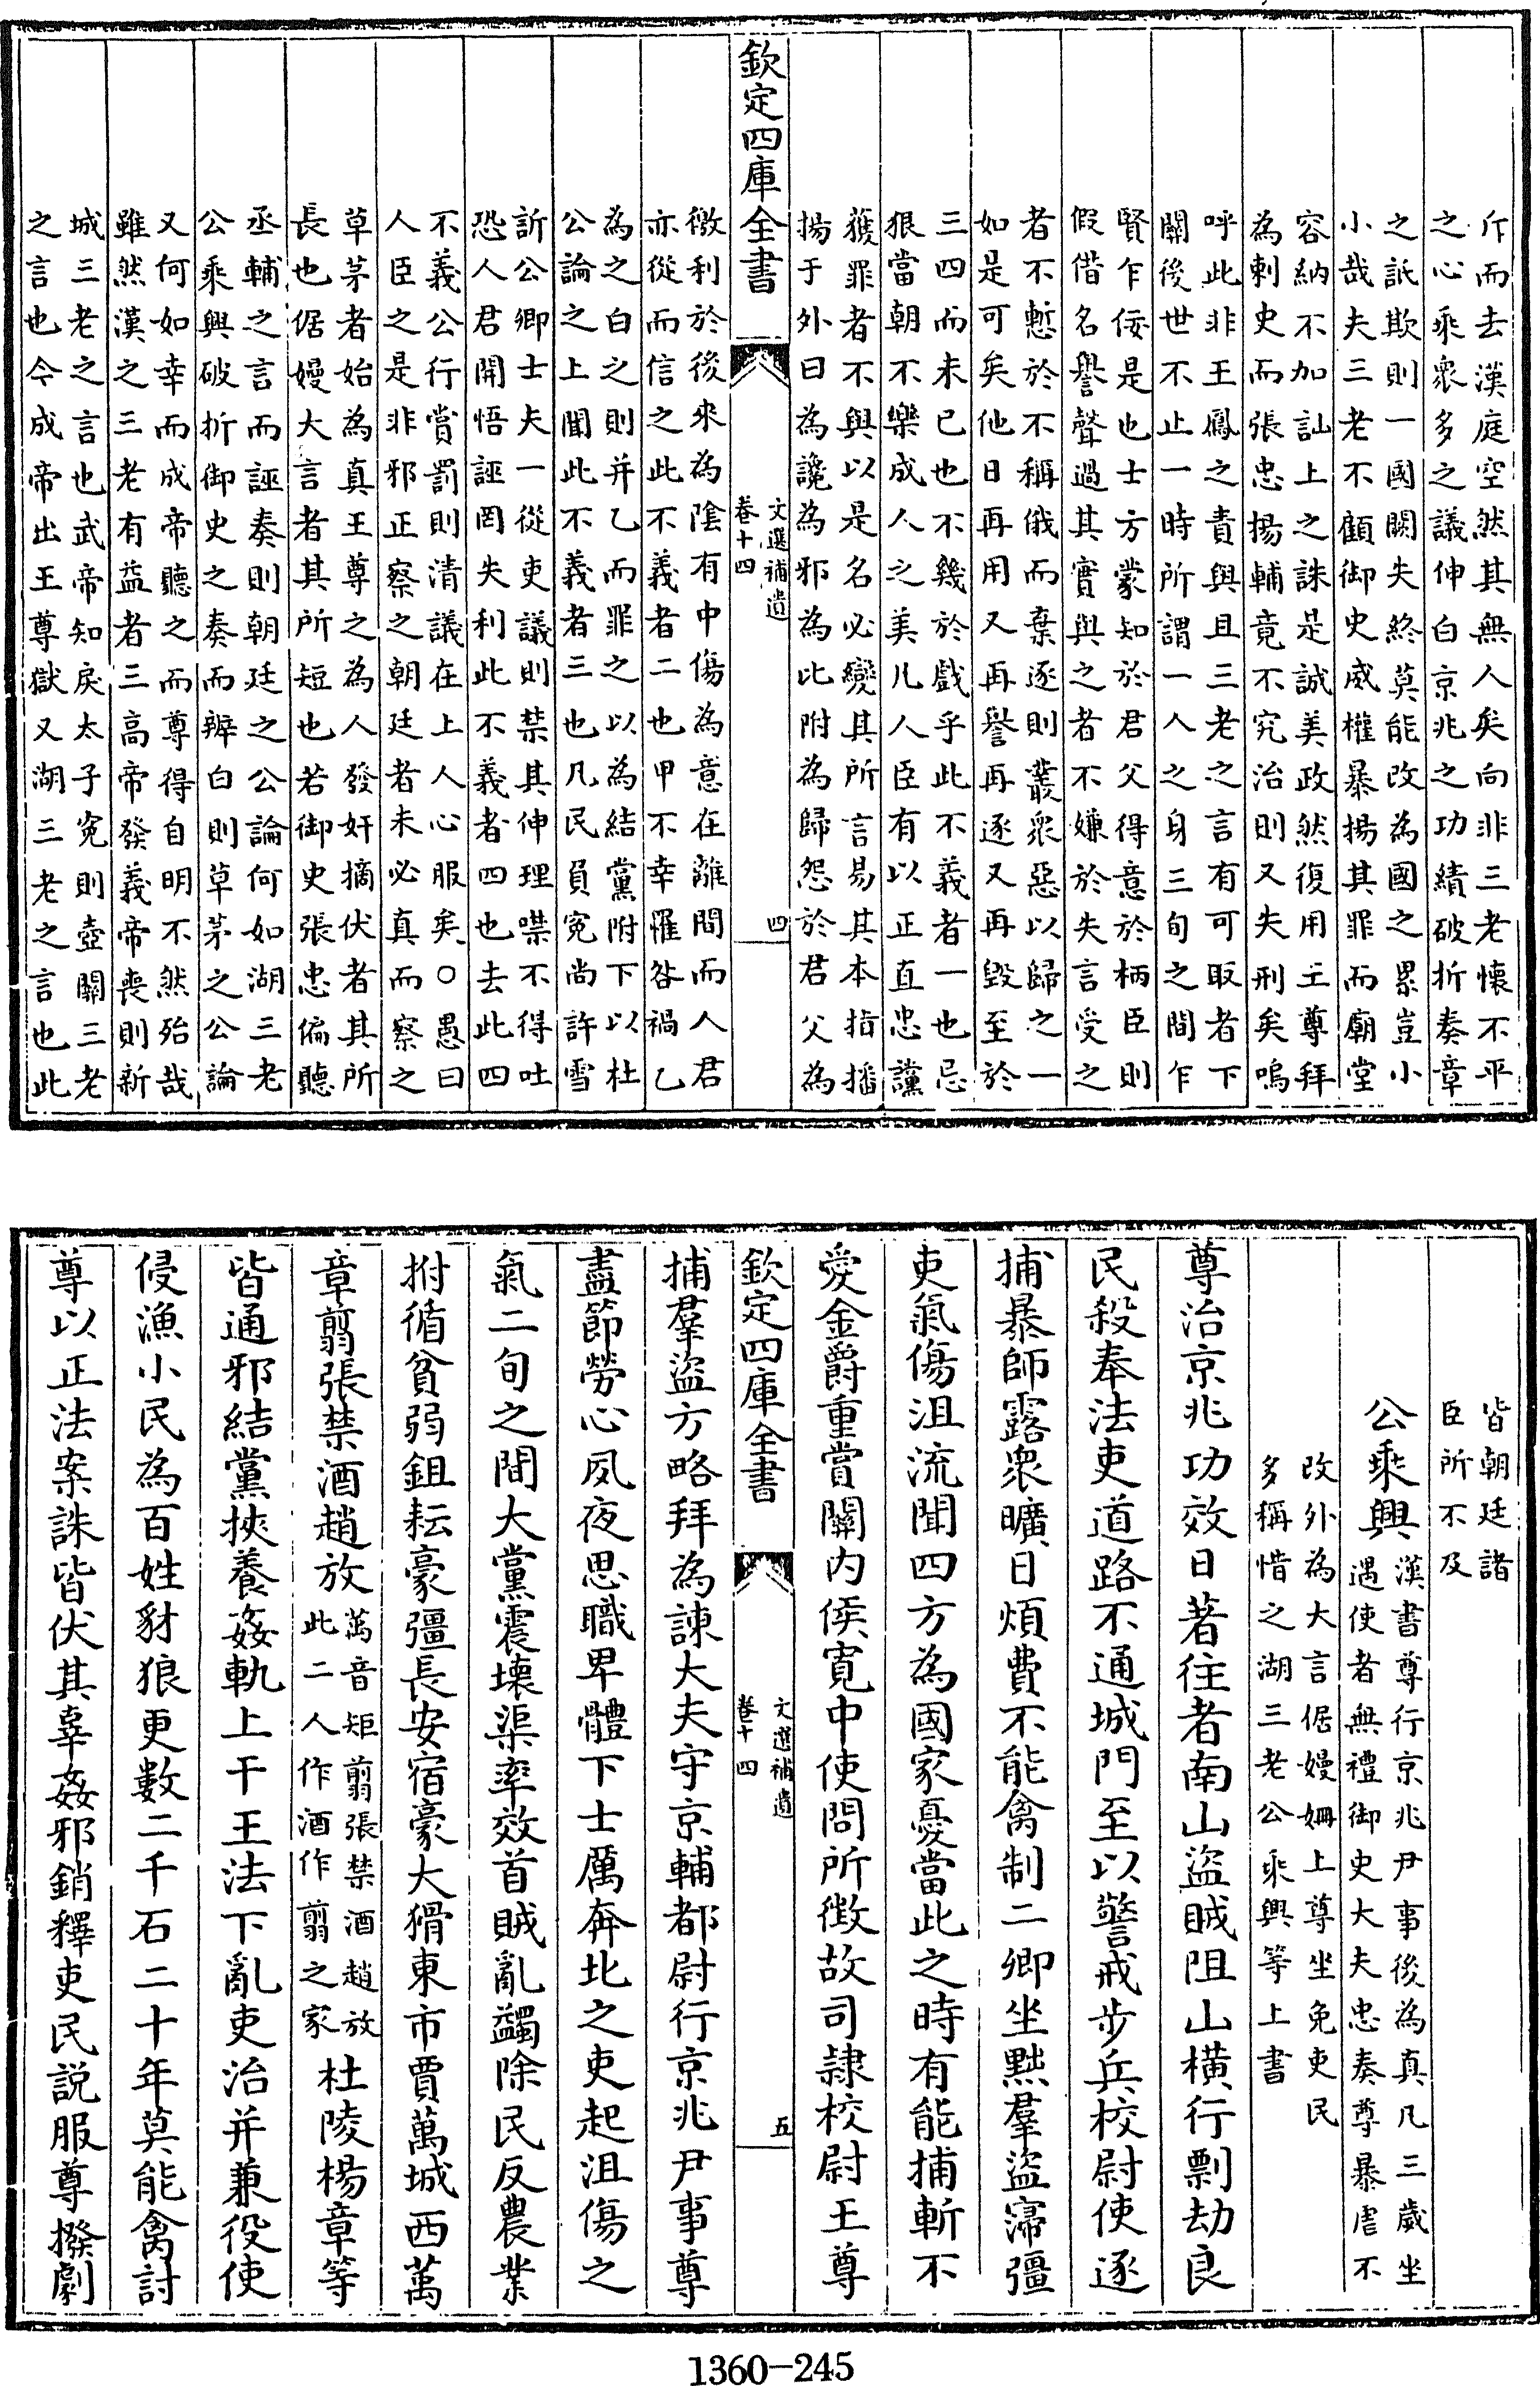 斥而去漢庭空然其無人矣向非三老懷不平
之心乘衆多之議伸白京兆之功績破折奏章
之詆欺則一國闕失終莫能改為國之累豈小
小哉夫三老不顧御史威權暴揚其罪而廟堂
容納不加訕上之誅是誠美政然復用王尊拜
為刺史而張忠揚輔竟不究治則又失刑矣嗚
呼此非王鳳之責與且三老之言有可取者下
關後世不止一時所謂一人之身三旬之間乍
賢乍佞是也士方蒙知於君父得意於柄臣則
假借名譽聲過其實與之者不嫌於失言受之
者不慙於不稱俄而棄逐則叢衆惡以歸之一
如是可矣他日再用又再譽再逐又再毀至於
三四而未已也不幾於戲乎此不義者一也忌
狠當朝不樂成人之美凡人臣有以正直忠讜
獲罪者不與以是名必變其所言易其本指播
揚于外曰為讒為邪為比附為歸怨於君父為
欽定四庫全書
文選補遺
卷十四
四
徼利於後來為陰有中傷為意在離間而人君
亦從而信之此不義者二也甲不幸罹咎禍乙
為之白之則并乙而罪之以為結黨附下以杜
公論之上聞此不義者三也凡民負寃尚許雪
訢公卿士夫一從吏議則禁其伸理噤不得吐
恐人君開悟誣罔失利此不義者四也去此四
不義公行賞罰則清議在上人心服矣〇愚曰
人臣之是非邪正察之朝廷者未必真而察之
草茅者始為真王尊之為人發奸摘伏者其所
長也倨嫚大言者其所短也若御史張忠偏聽
丞輔之言而誣奏則朝廷之公論何如湖三老
公乘興破折御史之奏而辨白則草茅之公論
又何如幸而成帝聽之而尊得自明不然殆哉
雖然漢之三老有益者三高帝發義帝喪則新
城三老之言也武帝知戾太子寃則壺關三老
之言也今成帝出王尊獄又湖三老之言也此
皆朝廷諸
臣所不及
公乘興
漢書尊行京兆尹事後為真凡三歲坐
遇使者無禮御史大夫忠奏尊暴虐不
改外為大言倨嫚姍上尊坐免吏民
多稱惜之湖三老公乘興等上書
尊治京兆功效日著往者南山盜賊阻山橫行剽劫良
民殺奉法吏道路不通城門至以警戒步兵校尉使逐
捕暴師露衆曠日煩費不能禽制二卿坐黜羣盜寖彊
吏氣傷沮流聞四方為國家憂當此之時有能捕斬不
愛金爵重賞關內侯寬中使問所徵故司隷校尉王尊
欽定四庫全書
文選補遺
卷十四
五
捕羣盜方略拜為諫大夫守京輔都尉行京兆尹事尊
盡節勞心夙夜思職卑體下士厲奔北之吏起沮傷之
氣二旬之間大黨震壞渠率效首賊亂蠲除民反農業
拊循貧弱鉏耘豪彊長安宿豪大猾東市賈萬城西萬
章翦張禁酒趙放
萬音矩翦張禁酒趙放
此二人作酒作翦之家
杜陵楊章等
皆通邪結黨挾養姦軌上干王法下亂吏治并兼役使
侵漁小民為百姓豺狼更數二千石二十年莫能禽討
尊以正法案誅皆伏其辜姦邪銷釋吏民説服尊撥劇
1360-245